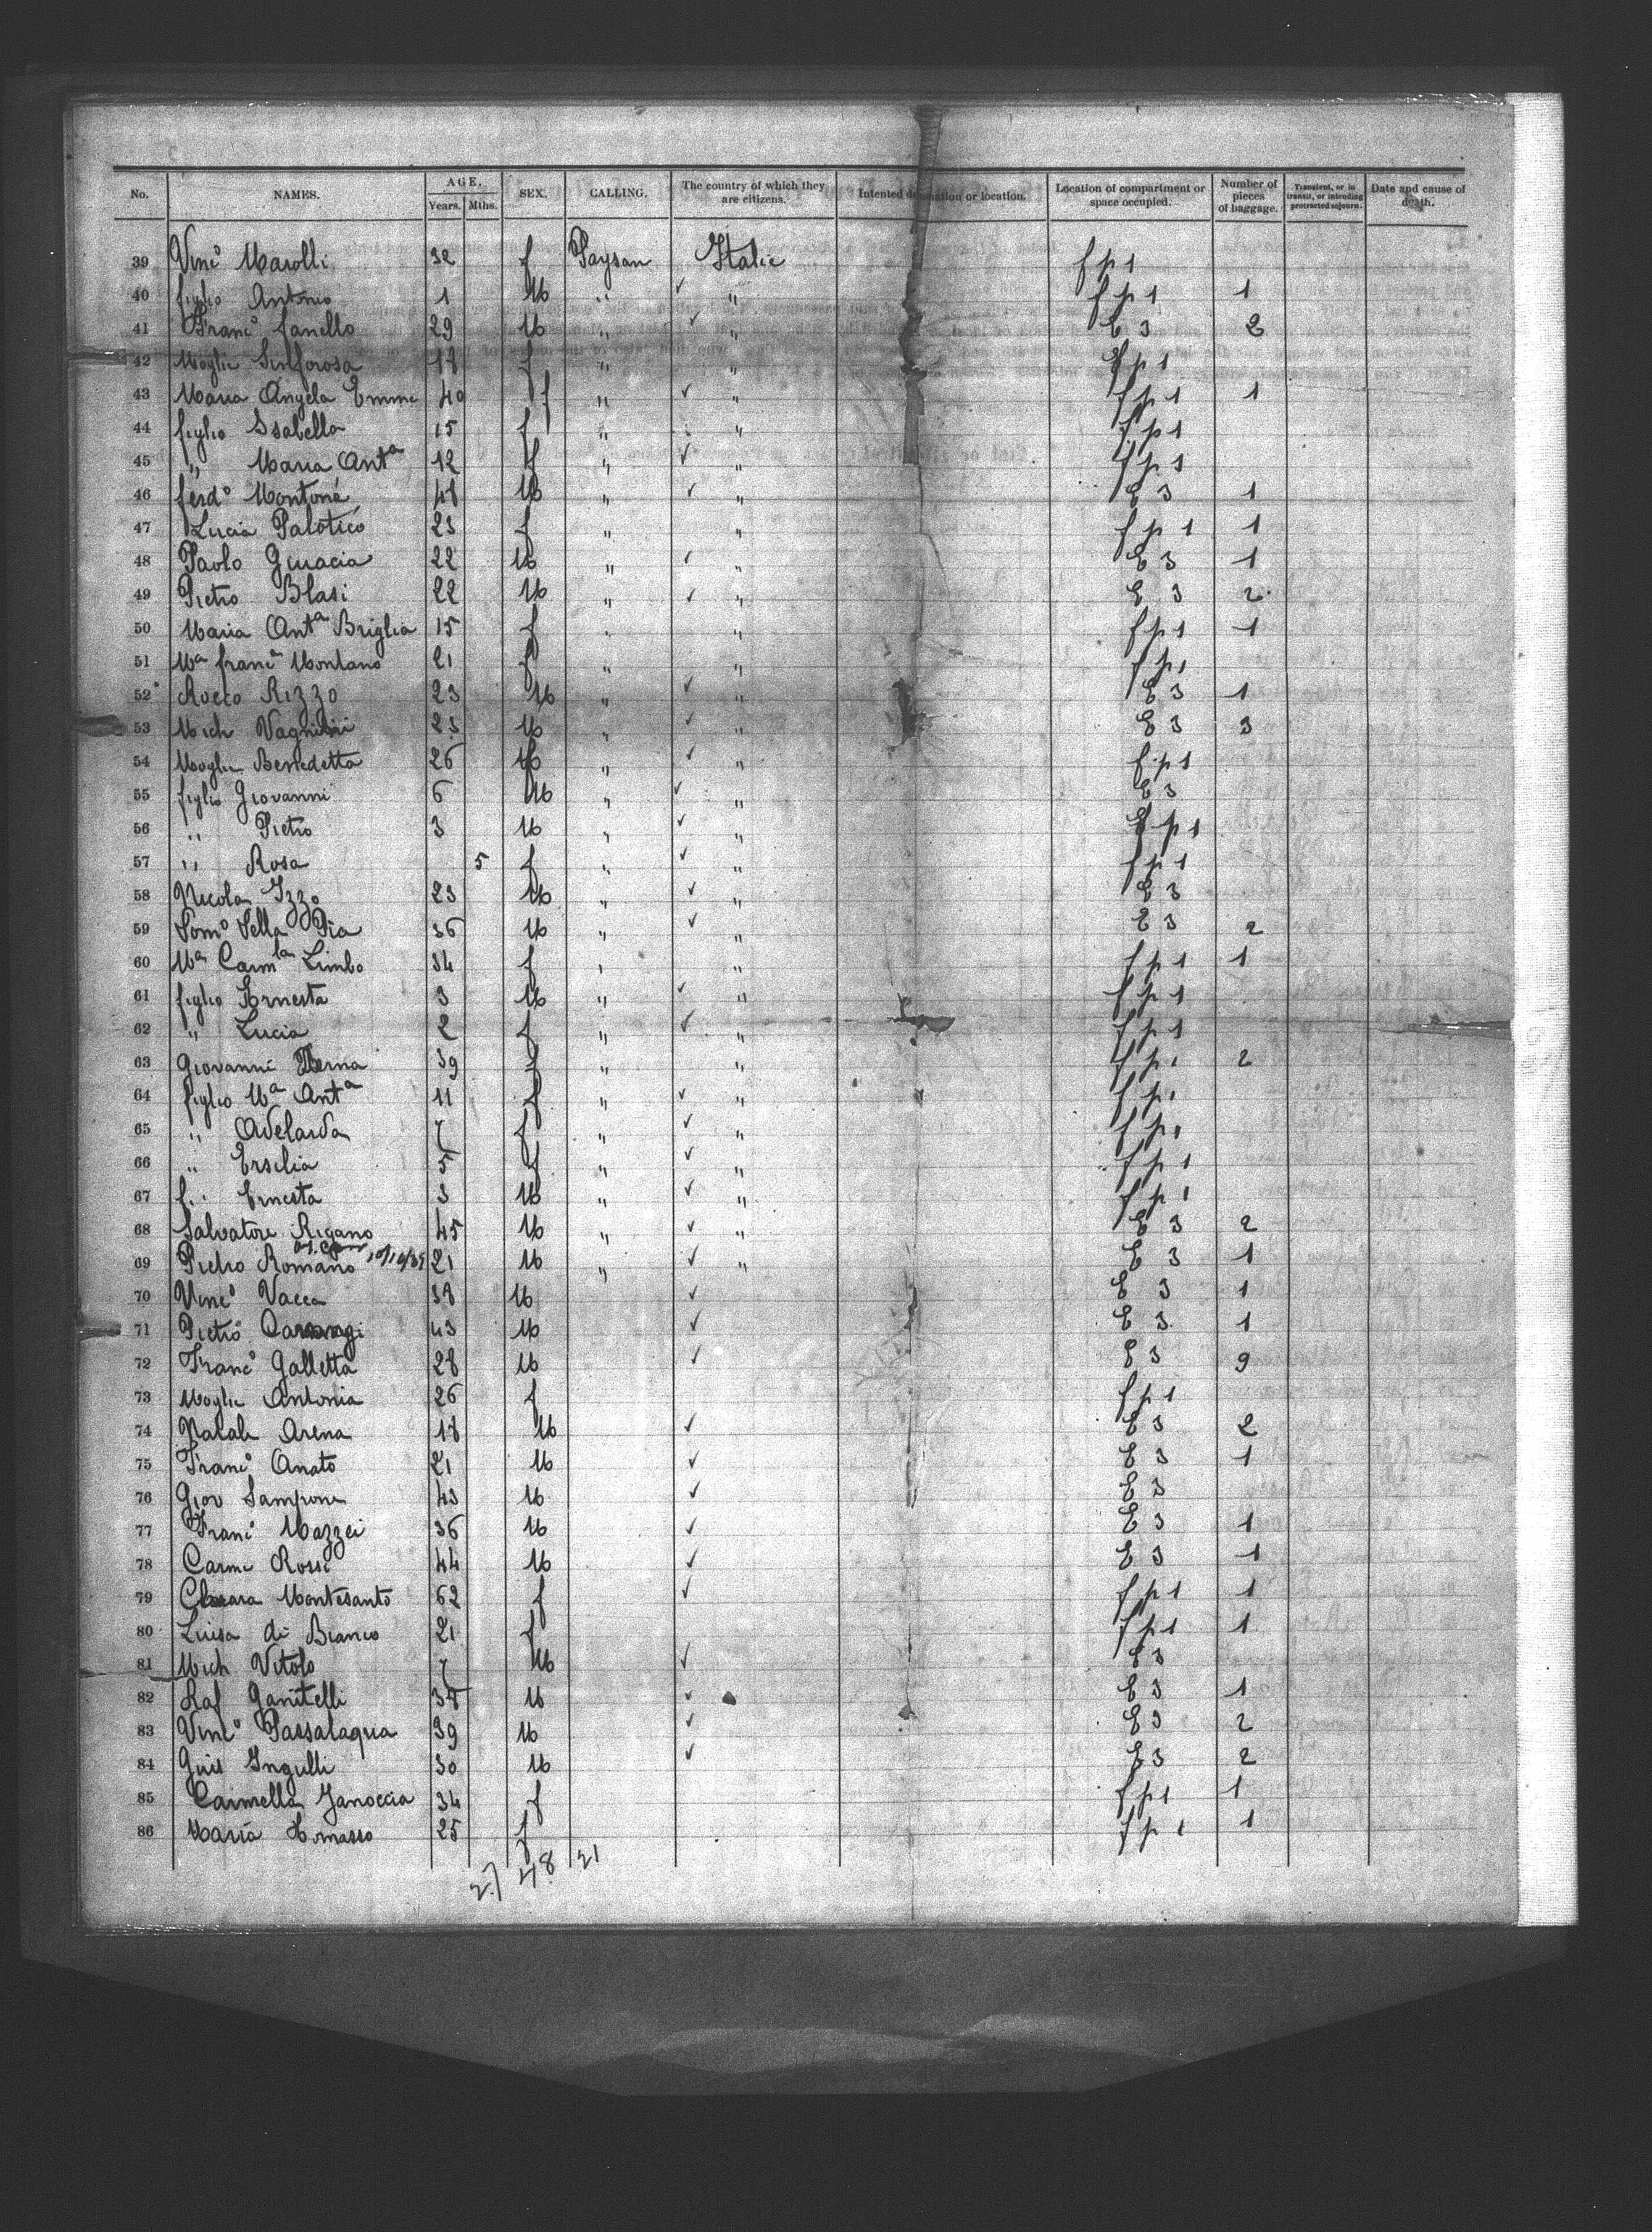 No. NAMES. AGE. Years. Mths. SEX. CALLING. The country of which they are citizens. Intented destination or location. Location of compartment or space occupied. Number of pieces of baggage. Transient, or in transit, or intending protracted sojourn. Date and cause of death.
39 Vinc° Marolli 32 f Paysan Italie f p 1
40 figlio Antonio 1 M " " f p 1 1
41 Franc° Ianello 29 M " " E 3 2
42 Moglie Sinforosa 18 f " " f p 1
43 Maria Angela Emme 40 f " " f p 1 1
44 figlio Isabella 15 f " " f p 1
45 " Maria Anta 12 f " " f p 1
46 ferd° Montone 48 M " " E 3 1
47 Lucia Palotico 23 f " " f p 1 1
48 Paolo 22 M " " E 3 1
49 Pietro Blasi 22 M " " E 3 2
50 Maria Anta Briglia 15 f " " f p 1 1
51 Ma franca Montano 21 f " " f p 1
52 Rocco Rizzo 23 M " " E 3 1
53 Mich 23 M " " E 3 3
54 Moglie Benedetta 26 " " f p 1
55 figlio Giovanni 6 M " " E 3
56 " Pietro 3 M " " f p 1
57 " Rosa 5 f " " f p 1
58 Nicola Izzo 23 M " " E 3
59 Dom° Della Pia 36 M " " E 3 2
60 Ma Carmla Limbo 34 f " " f p 1 1
61 figlio Ernesta 3 M " " f p 1
62 " Lucia 2 f " " f p 1
63 Giovanni 39 f " " f p 1 2
64 figlio Ma Anta 11 f " " f p 1
65 " Adelaida 7 f " " f p 1
66 " Ersilia 5 f " " f p 1
67 f " Ernesta 3 M " " f p 1
68 Salvatore Rigano 45 M " " E 3 2
69 Pietro Romano 21 M " " E 3 1
70 Vinc° Vacca 38 M E 3 1
71 Pietro 43 M E 3 1
72 Franc° Galletta 28 M E 3 9
73 Moglie Antonia 26 f f p 1
74 Natale Arena 18 M E 3 2
75 Franc° Anato 21 M E 3 1
76 Giov Sampone 43 M E 3
77 Franc° Mazzei 36 M E 3 1
78 Carme Rossi 44 M E 3 1
79 Montesanto 62 f f p 1 1
80 Luisa di Bianco 21 f f p 1 1
81 Mich Vitolo 7 M E 3
82 Raf Ganitelli M E 3 1
83 Vinc° Passalaqua 39 M E 3 2
84 Gius Ingulli 30 M E 3 2
85 Carmella Janoccia 34 f f p 1 1
86 Maria Tomasso 25 f f p 1 1
27 48 21